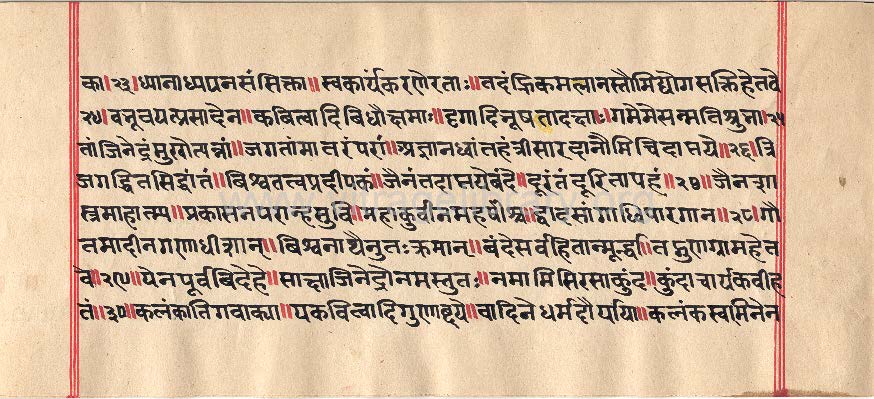 का।२३।ध्यानाध्ययनसंसिक्ता॥स्वकार्यकरणेरताः॥वदंद्रिकमत्मानस्तौमिद्योगसक्तिहेतवे
२४॥वनूवयत्प्रसादेन॥कवित्वादिबिधौक्षमाः॥दृगादिनूषतादक्षाः।गमेमेसन्मतिश्रुता॥२५
तांजिनेद्रंमुखोत्पन्नां॥जगतांमातरंपरां॥अज्ञानध्वांतहंत्रीसारदानौमिचिदाप्तये॥२६॥त्रि
जगद्धितसिद्धांतं॥विश्वतत्वप्रदीपकं॥जैनंतदाप्तयेवंदे॥दूरंतंदूरितापहं॥२७॥जैनशा
स्त्रमाहात्म्य॥प्रकासनपरान्हसुवि॥महाकुवीनमहर्षीश्च॥द्वादसांगाब्धिपारगान॥२८॥गौ
तमादीनगणधीशान्॥विश्वनाथैनुतःक्रमान्॥वंदेसर्वहितान्मूर्द्ध्ना॥तद्गुणग्रामहेत
वे॥२९॥येनपूर्वबिदेहे॥साक्षाजिनेद्रोनमस्तुतः॥नमामिसिरसाकुंद॥कुंदाचार्यकवीह
तं॥३०॥कलंकातिगवाक्या॥यकवित्वादिगुणाष्टये॥वादिनेधर्मदौर्यया॥कलंकस्वमिनेन
www.jainlibrary.org